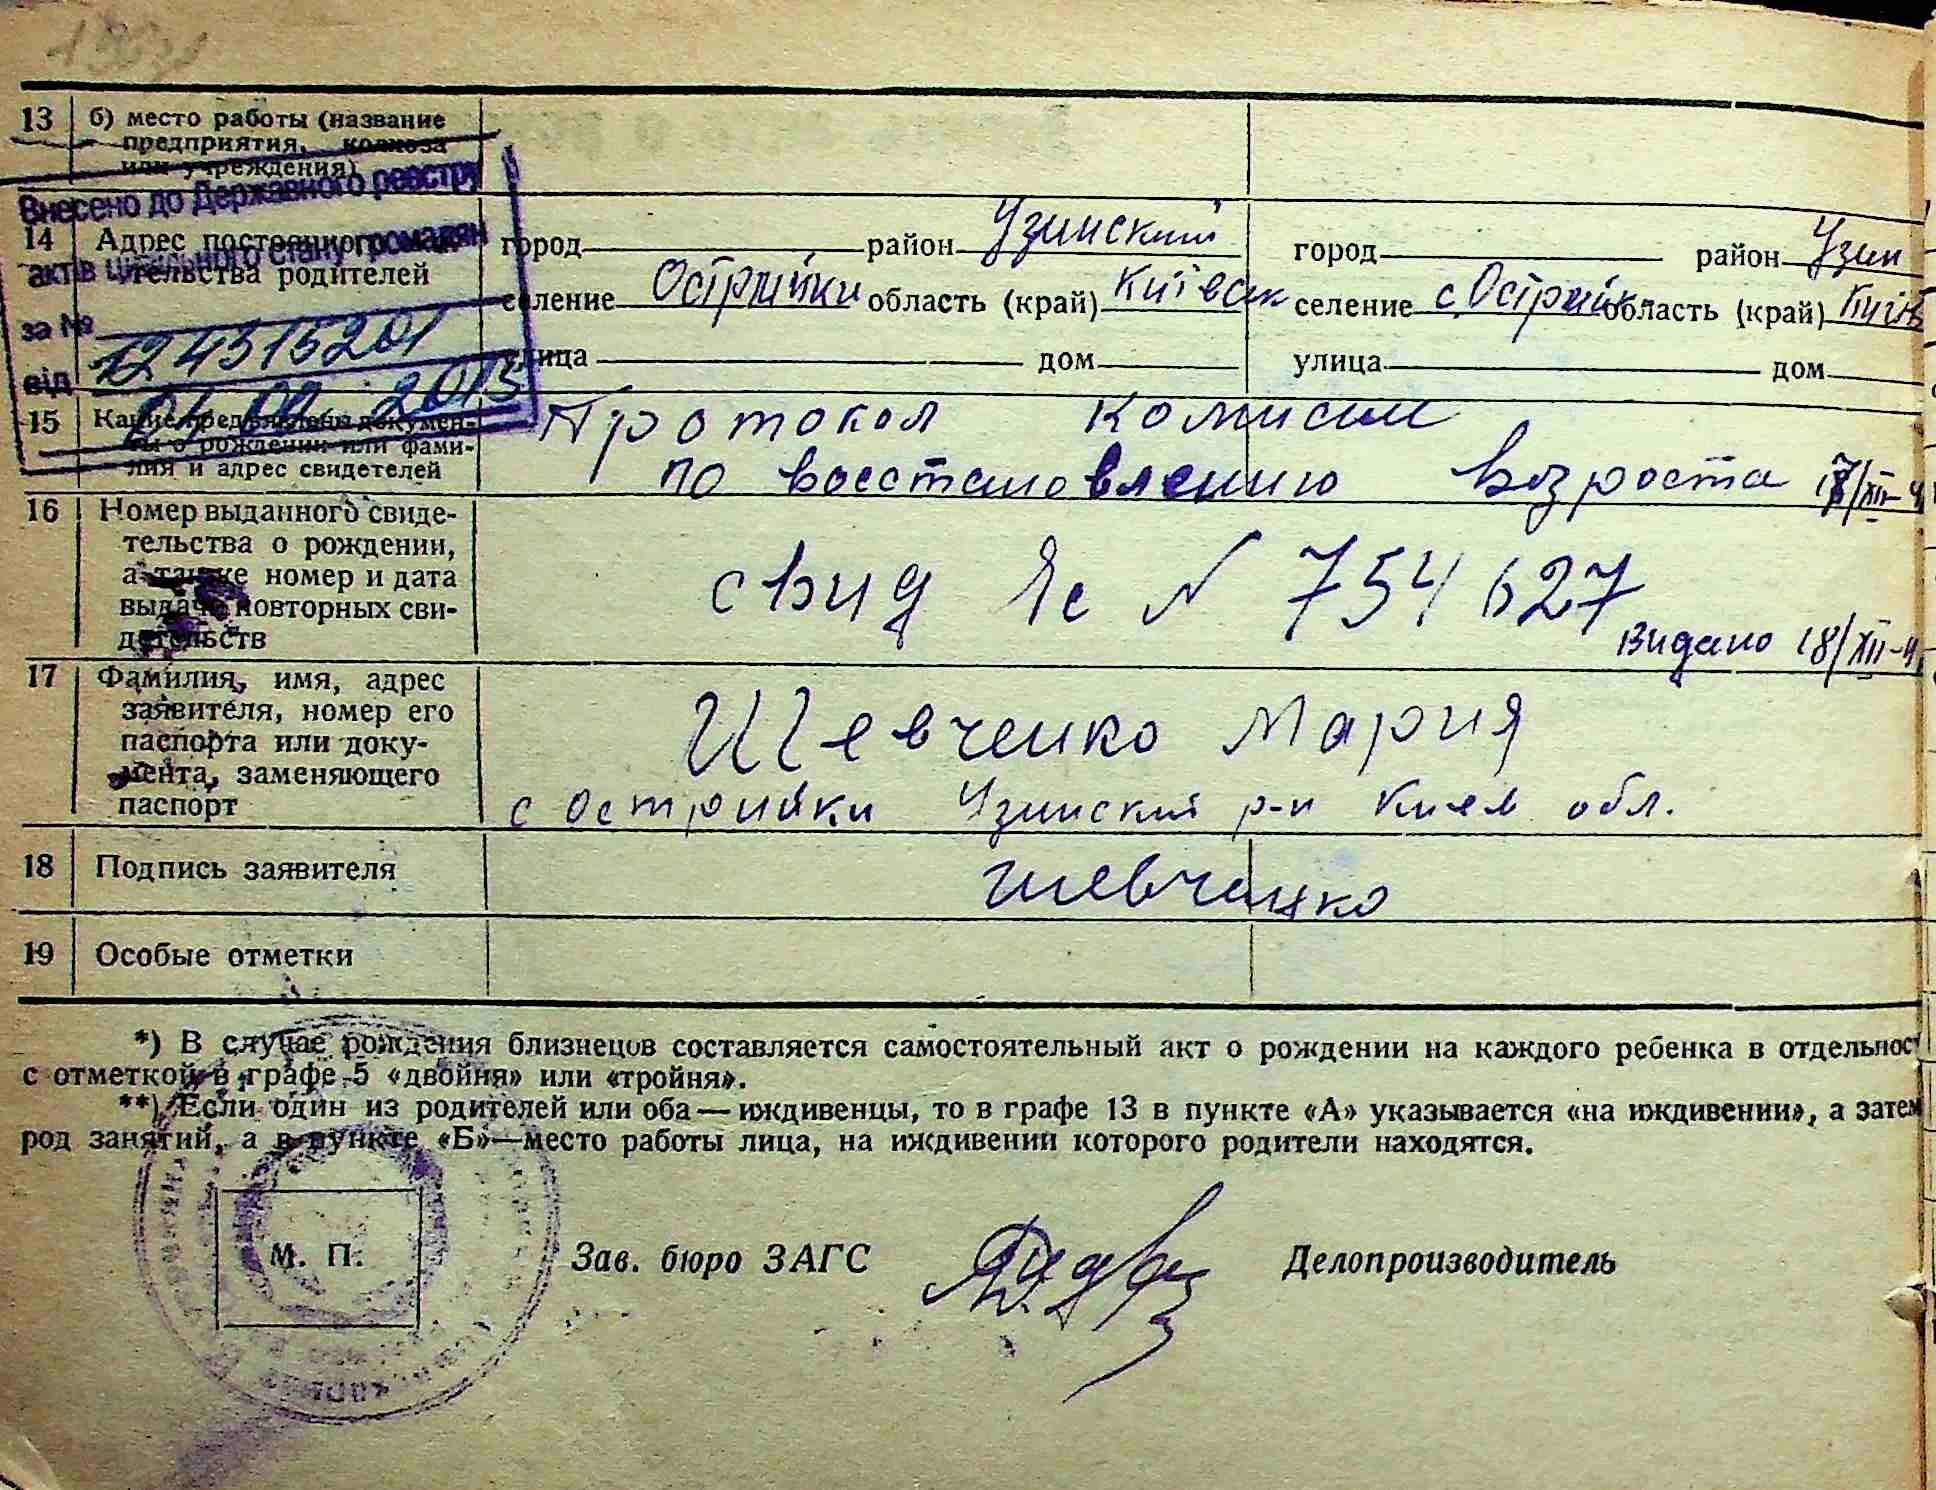 13 б) место работы (название
предприятия, колхоза
или учреждения)
Внесено до Державного реєстру
актів цивільного стану громадян
за № 124315201
від 2015
14 Адрес постоянного
тельства родителей
город район Узинский
селение Острийки область (край) Київськ
улица дом
город район Узин
селение с. Острійк область (край) Київ
улица дом
15 Какие предъявлены докумен-
ты о рождении или фами-
лия и адрес свидетелей
Протокол комисии
по восстановлению возроста 18/XII-4
16 Номер выданного свиде-
тельства о рождении,
а также номер и дата
выдачи повторных сви-
детельств
свид Яс № 754627
Видано 18/XII-4
17 Фамилия, имя, адрес
заявителя, номер его
паспорта или доку-
мента, заменяющего
паспорт
Шевченко Мария
с Острийки Узинский р-н Киев обл.
18 Подпись заявителя
Шевченко
19 Особые отметки
*) В случае рождения близнецов составляется самостоятельный акт о рождении на каждого ребенка в отдельност
с отметкой в графе 5 «двойня» или «тройня».
**) Если один из родителей или оба — иждивенцы, то в графе 13 в пункте «А» указывается «на иждивении», а затем
род занятий, а в пункте «Б»—место работы лица, на иждивении которого родители находятся.
М. П.
Зав. бюро ЗАГС
Делопроизводитель